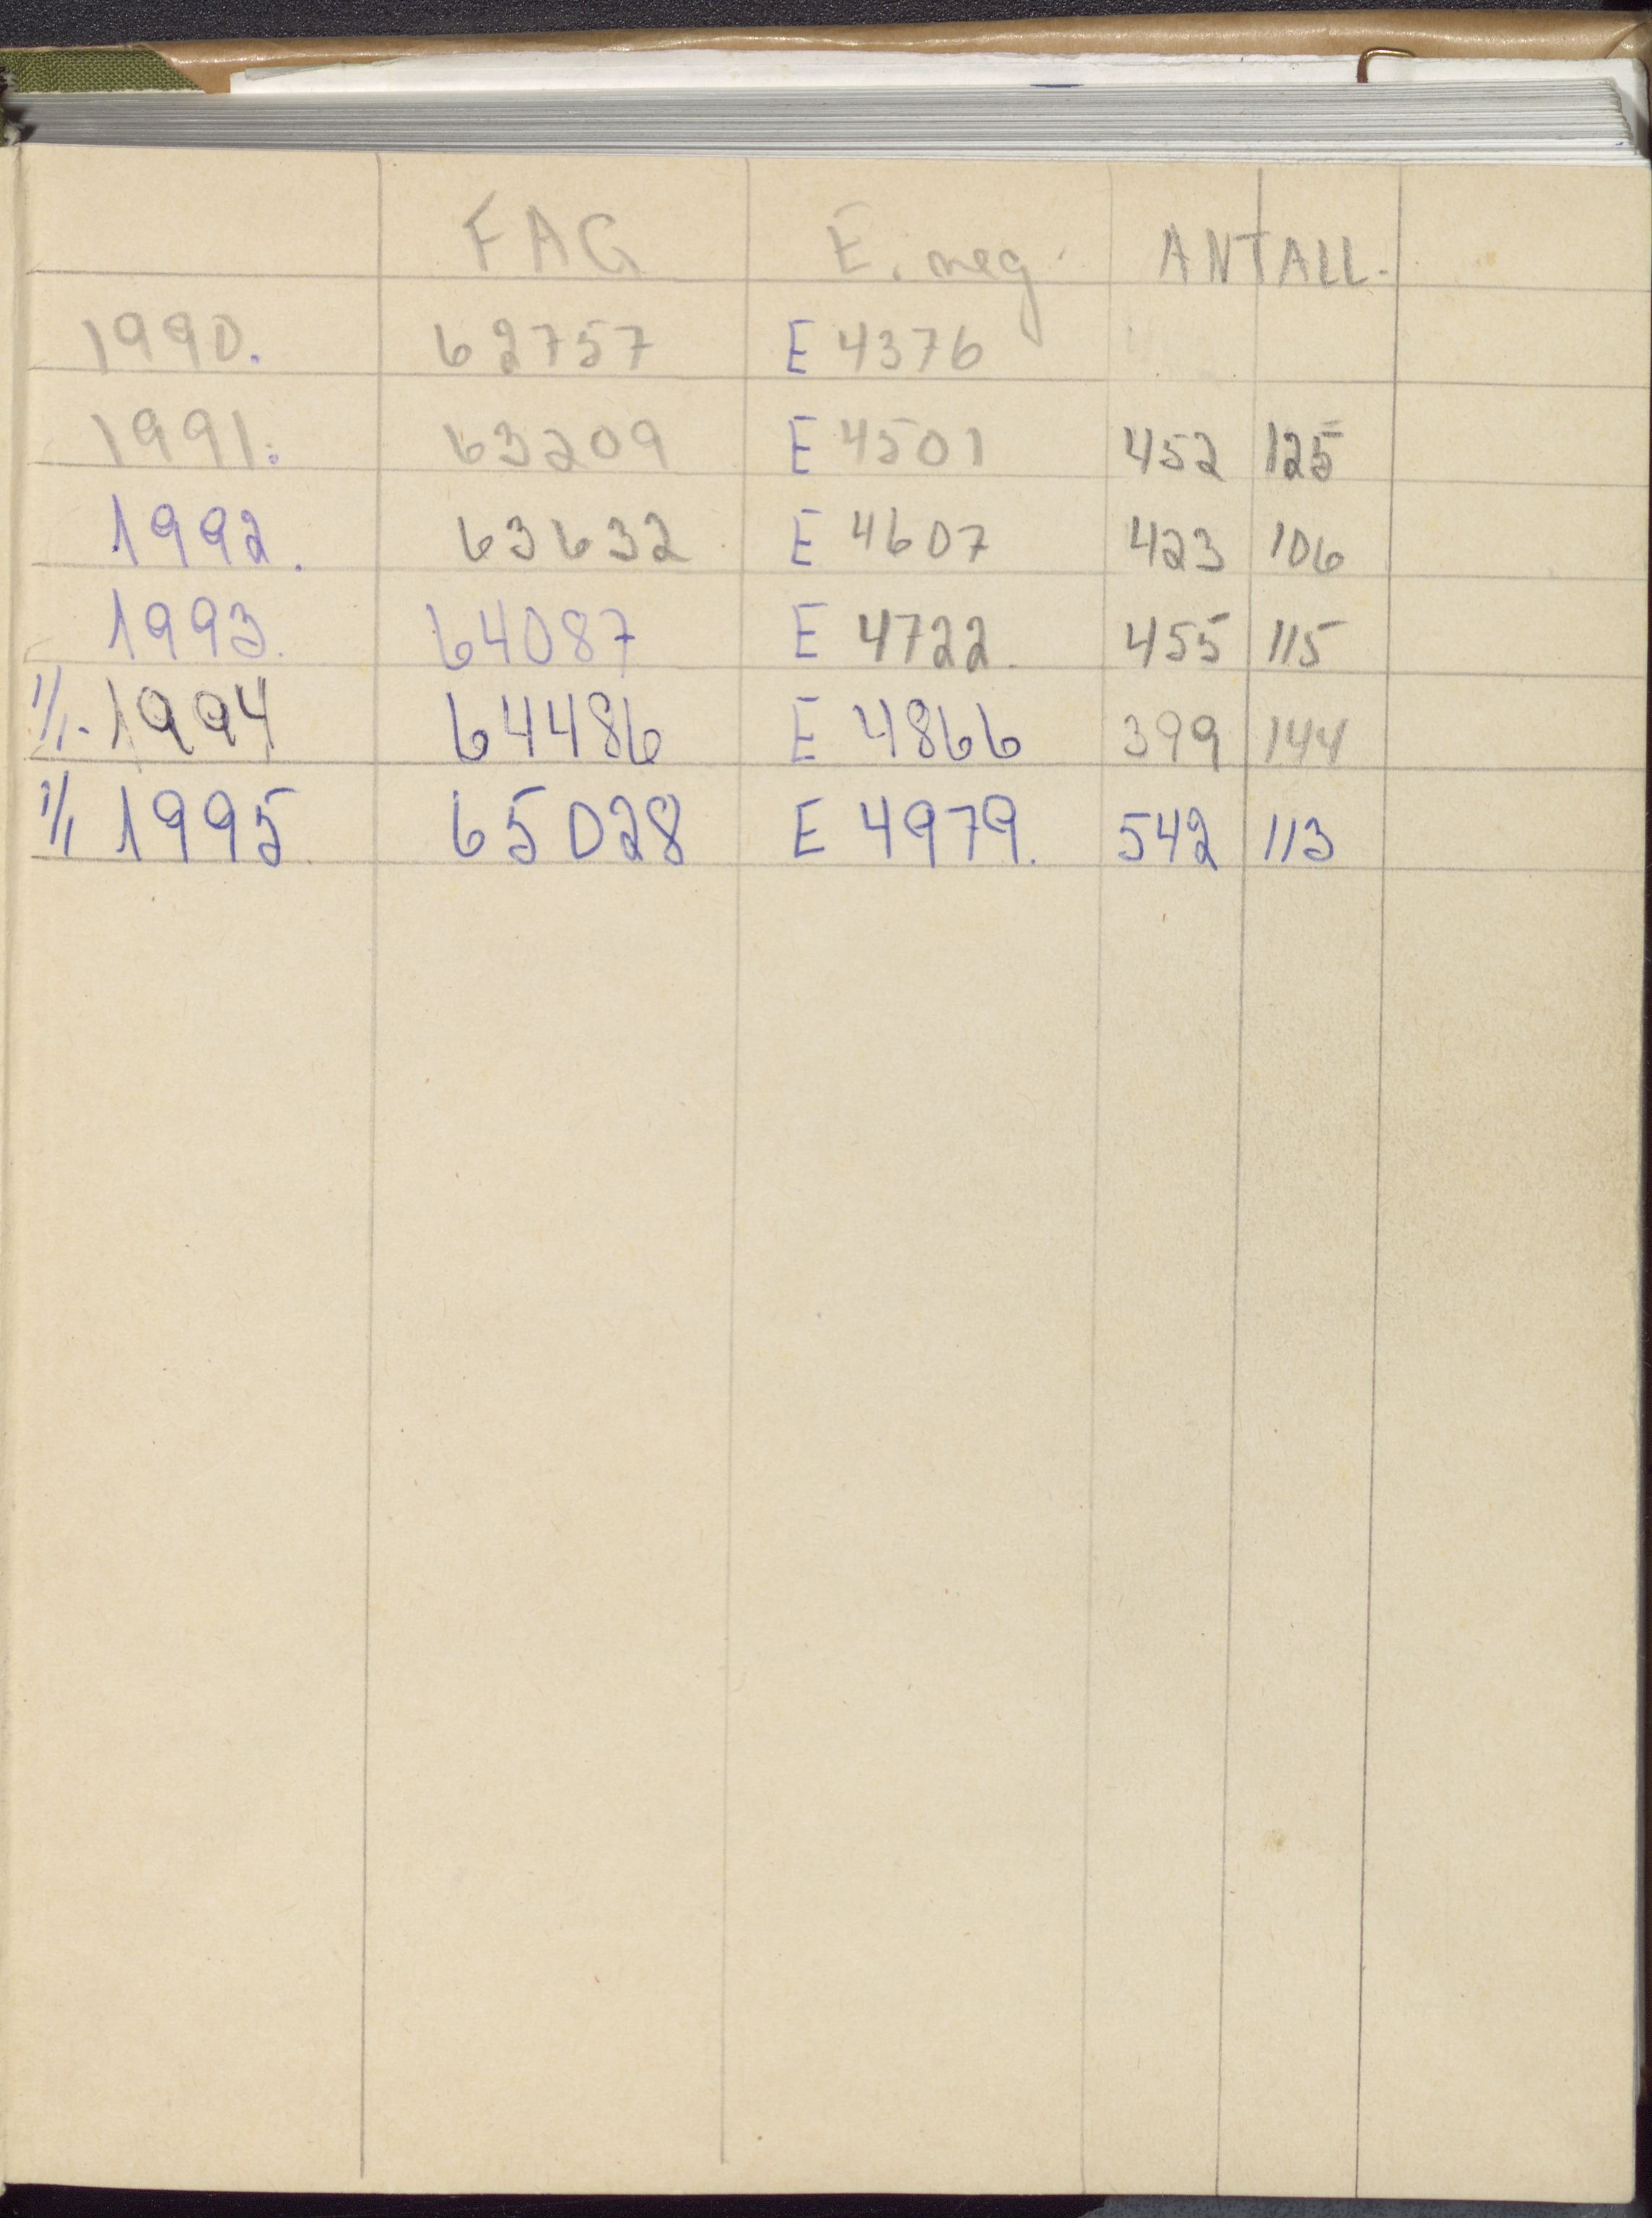 FAG E. neg. ANTALL.
1990. 62757 E 4376
1991. 63209 E 4501 452 125
1992. 63632 E 4607 423 106
1993. 64087 E 4722. 455 115
1/1. 1994 64486 E 4866 399 144
1/1 1995. 65028 E 4979. 542 113